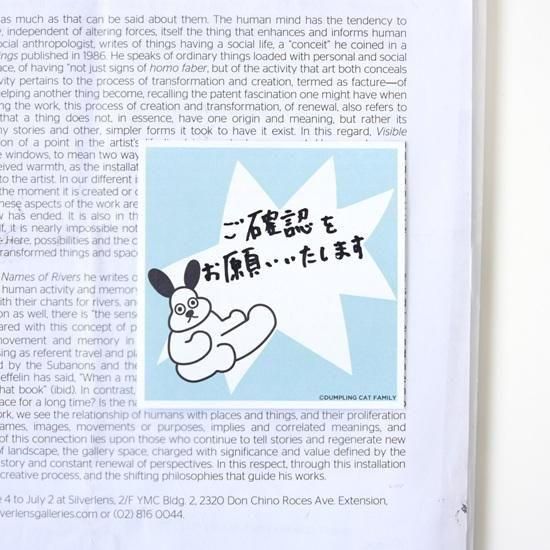 as much as that can be said about them. The human mind has the tendency to
, independent of altering forces, itself the thing that enhances and informs human
ocial anthropologist, writes of things having a social life, a "conceit" he coined in a
ings published in 1986. He speaks of ordinary things loaded with personal and social
ace, of having "not just signs of homo faber, but of the activity that art both conceals
vity pertains to the process of transformation and creation, termed as facture—of
helping another thing become, recalling the patent fascination one might have when
ng the work, this process of creation and transformation, of renewal, also refers to
that a thing does not, in essence, have one origin and meaning, but rather its
ny stories and other, simpler forms it took to have it exist. In this regard, Visible
on of a point in the artist's
e windows, to mean two way
eived warmth, as the installat
to the artist. In our different i
the moment it is created or c
hese aspects of the work are
w has ended. It is also in th
lf, it is nearly impossible not
e Here, possibilities and the c
transformed things and space
Names of Rivers he writes o
human activity and memory
ith their chants for rivers, and
on as well, there is "the sense
ared with this concept of p
movement and memory in
sing as referent travel and pla
d by the Subanons and the
effelin has said, "When a ma
hat book" (ibid). In contrast,
ace for a long time? Is the na
ork, we see the relationship of humans with places and things, and their proliferation
ames, images, movements or purposes, implies and correlated meanings, and
of this connection lies upon those who continue to tell stories and regenerate new
of landscape, the gallery space, charged with significance and value defined by the
story and constant renewal of perspectives. In this respect, through this installation
creative process, and the shifting philosophies that guide his works.
e 4 to July 2 at Silverlens, 2/F YMC Bldg. 2, 2320 Don Chino Roces Ave. Extension,
verlensgalleries.com or (02) 816 0044.
ご確認を
お願いいたします
©DUMPLING CAT FAMILY